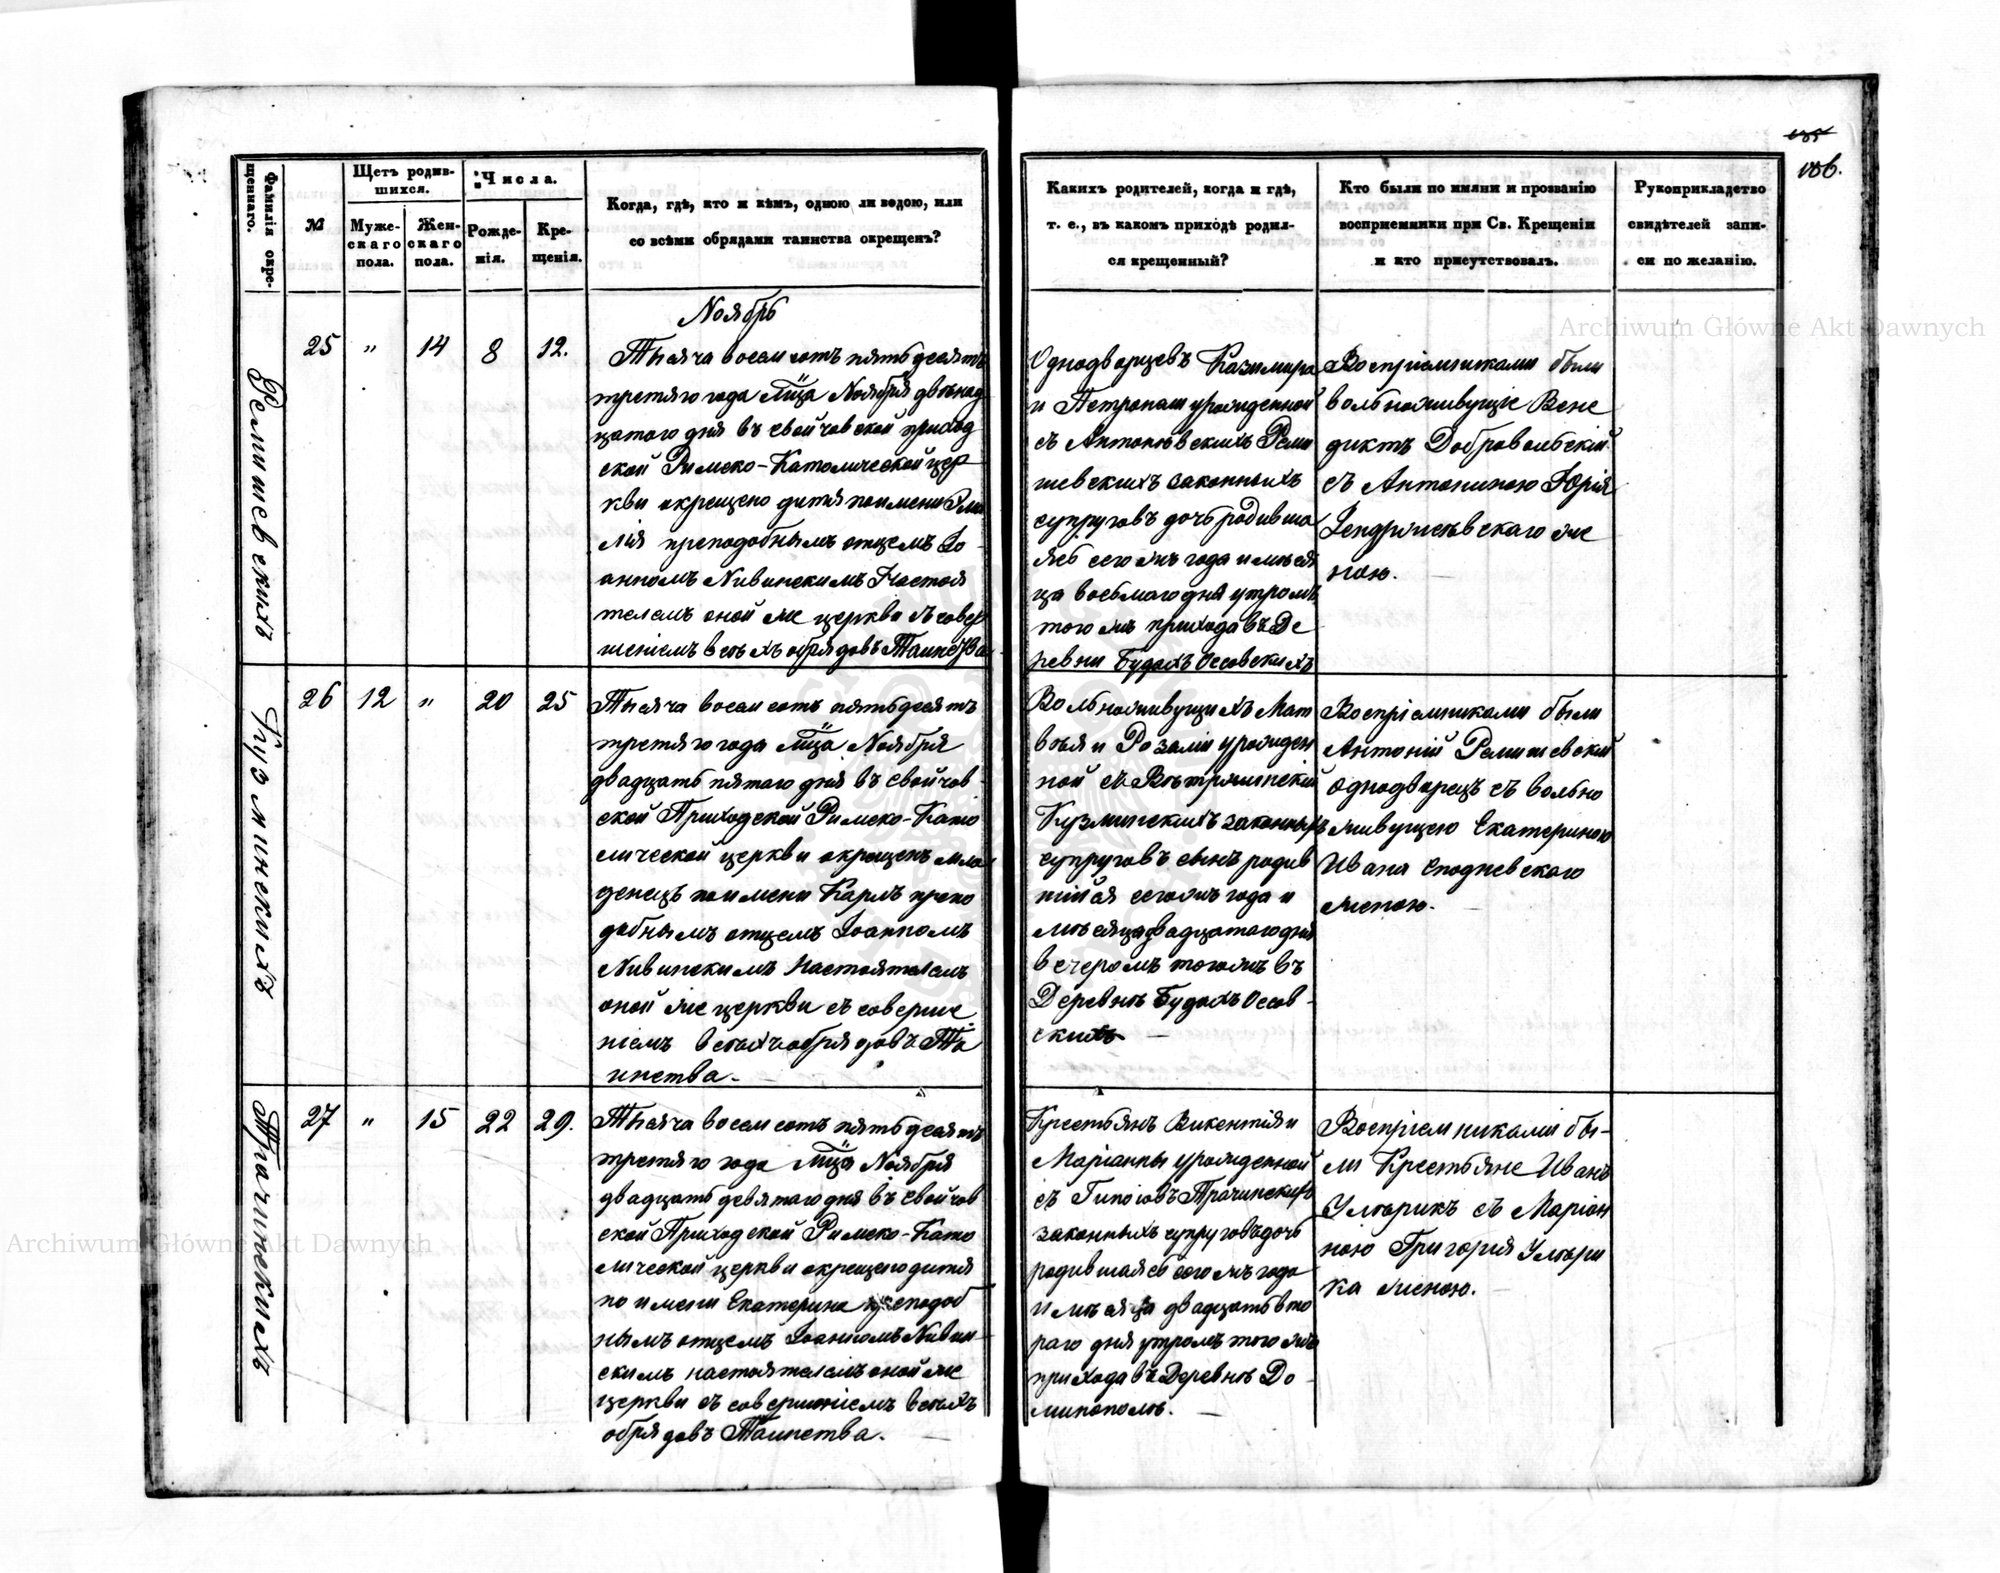 135
186.
Фамилія окре-
щеннаго.
№
Щетъ родив-
шихся.
Муже-
скаго
пола.
Жен-
скаго
пола.
Числа.
Рожде-
нія.
Кре-
щенія.
Когда, гдѣ, кто и кѣмъ, одною ли водою, или
со всѣми обрядами таинства окрещенъ?
Какихъ родителей, когда и гдѣ,
т. е., въ какомъ приходѣ родил-
ся крещенный?
Кто были по имяни и прозванію
восприемники при Св. Крещеніи
и кто присутствовалъ.
Рукоприкладство
свидѣтелей запи-
си по желанію.
Archiwum Główne Akt Dawnych
Ноябрь
Ремишевскихъ
25 " 14 8 12.
Тысяча восем сотъ пятьдесятъ
третяго года мца Ноября двѣнад
цатого дня въ Свойчовской приход
ской Римско-Католической цер
кви окрещено дитя по имени Эми
лія преподобнымъ отцемъ Іо
анномъ Нивинскимъ Настоя
телемъ оной же церкви съ совер
шеніемъ всѣхъ обрядовъ Таинства
Однодворцевъ Казимира
и Петронели урожденной
съ Антоньевскихъ Реми
шевскихъ законныхъ
супруговъ дочь родивша
ясь сего жъ года и мѣся
ца восьмаго дня утромъ
того жъ прихода въ Де
ревни Будахъ Осовскихъ
Воспріемниками были
вольноживущіе Вене
диктъ Добровольскій
съ Антониною Юрія
Гендрижевскаго же
ною.
Кузминскихъ
26 12 " 20 25
Тысяча восем сотъ пятьдесятъ
третяго года мца Ноября
двадцать пятого дня въ Свойчов
ской Приходской Римско-Като
лической церкви окрещенъ мла
денецъ по имени Карлъ препо
добнымъ отцемъ Іоанномъ
Нивинскимъ Настоятелемъ
оной же церкви съ соверше
ніемъ всѣхъ обрядовъ Та
инства.
Вольноживущихъ Мат
вѣя и Розаліи урожден
ной съ
Кузминскихъ законныхъ
супруговъ сынъ родив
шійся сего жъ года и
мѣсяца двадцатого дня
вечеромъ того жъ въ
Деревнѣ Будахъ Осов-
скихъ
Воспріемниками были
Антоній Ремишевскій
однодворецъ съ вольно
живущею Екатериною
Ивана Сподневского
женою.
Трачинскихъ
27 " 15 22 29.
Тысяча восем сотъ пятьдесятъ
третяго года мца Ноября
двадцать девятого дня въ Свойчов
ской Приходской Римско-Като
лической церкви окрещено дитя
по имени Екатерина преподоб
нымъ отцемъ Іоанномъ Нивин-
скимъ настоятелемъ оной же
церкви съ совершеніемъ всѣхъ
обрядовъ Таинства.
Крестьянъ Викентія и
Маріанны урожденной
съ Трачинскихъ
законныхъ супруговъ дочь
родившаясь сего жъ года
и мѣсяца двадцать вто
раго дня утромъ того жъ
прихода въ Деревнѣ До
минополѣ.
Воспріемниками бы-
ли Крестьяне Иванъ
Ульярикъ съ Маріан
ною Григорія Ульяри
ка женою.
Archiwum Główne Akt Dawnych